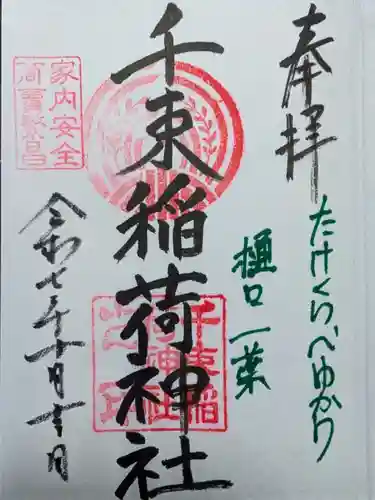 奉拝
たけくらべゆかり
樋口一葉
千束稲荷神社
千束稲
荷神社
之印
家内安全
商売繁昌
令和七年十月十一日